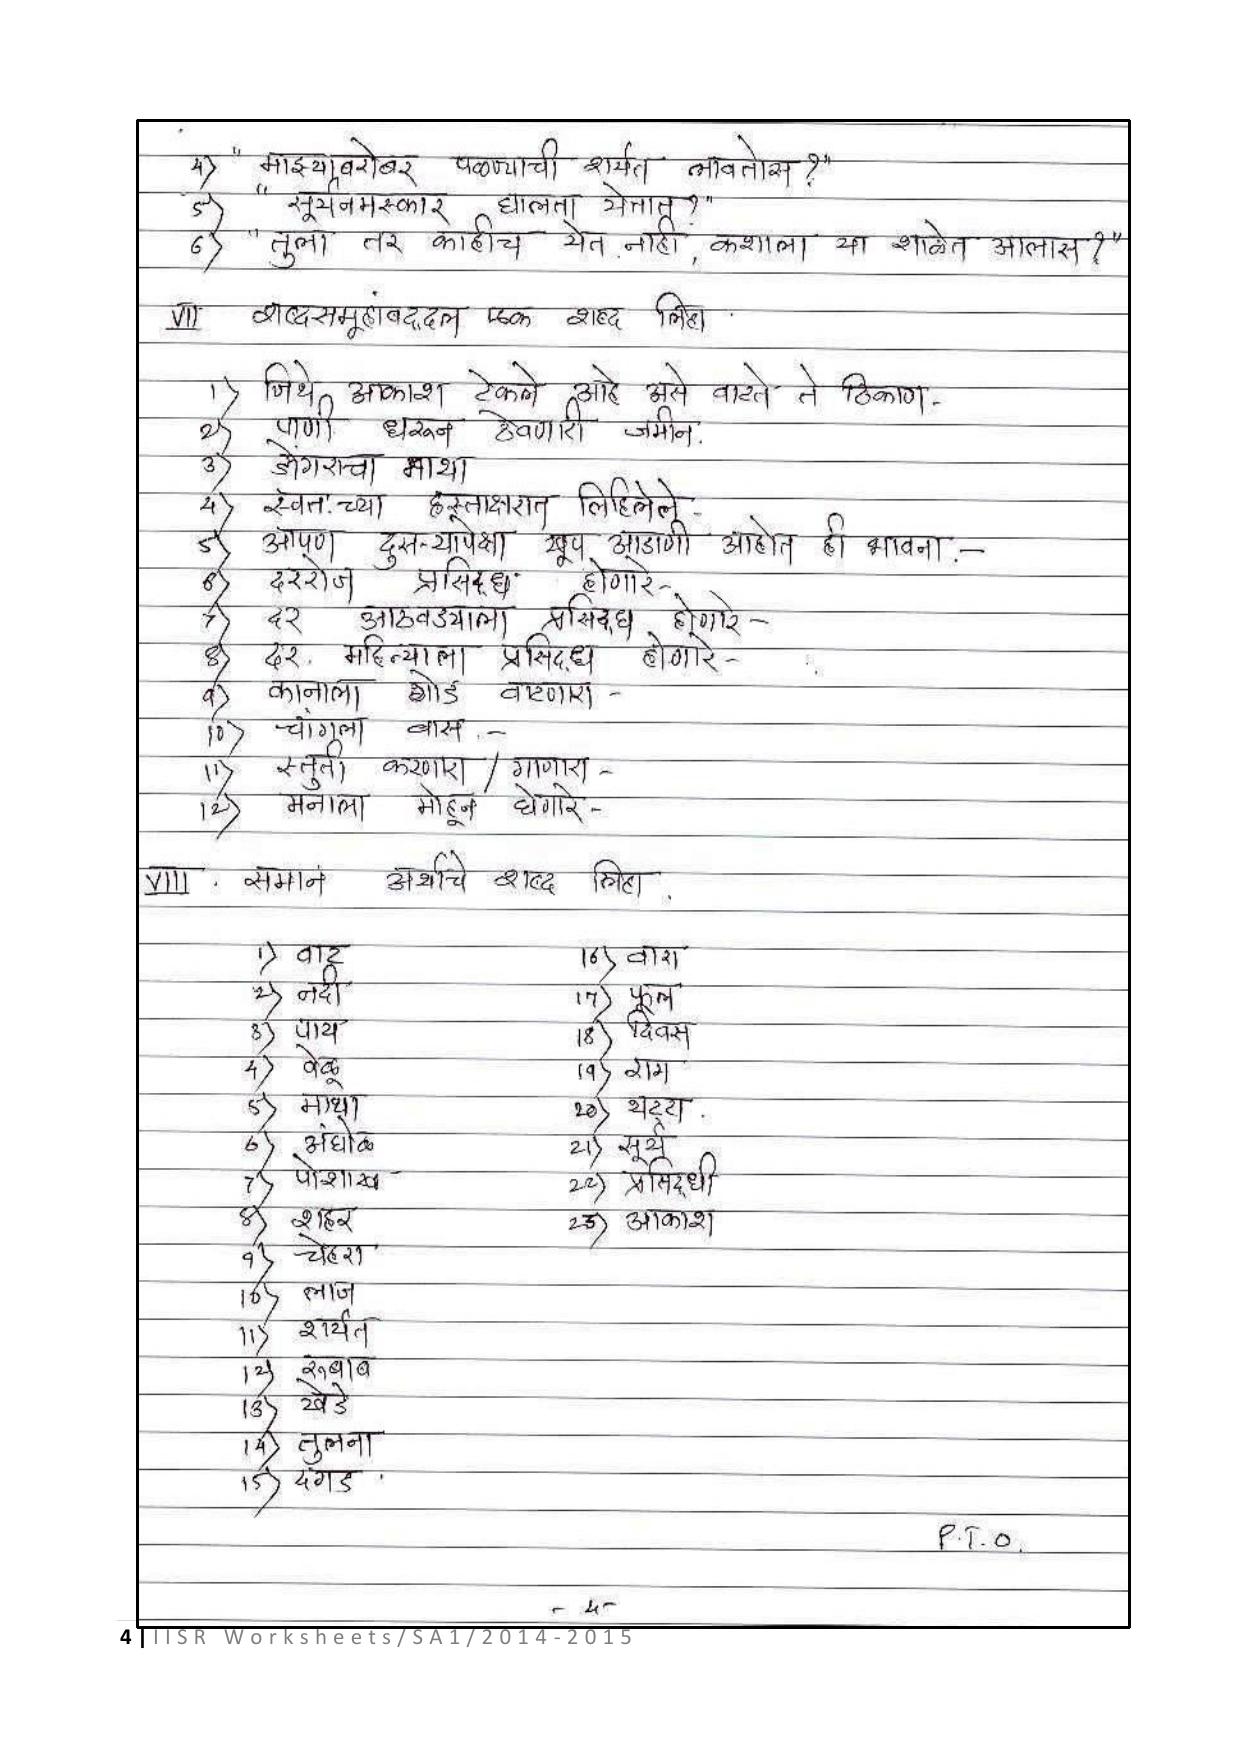 4) " माझ्याबरोबर पळण्याची शर्यत लावतोस ?"
5) " सूर्यनमस्कार घालता येतात ?"
6) " तुला तर काहीच येत नाही, कशाला या शाळेत आलास ?"
VII शब्दसमूहांबद्दल एक शब्द लिहा.
1) जिथे आकाश टेकले आहे असे वाटते ते ठिकाण -
2) पाणी धरून ठेवणारी जमीन.
3) डोंगराचा माथा
4) स्वतःच्या हस्ताक्षरात लिहिलेले -
5) आपण दुसऱ्यापेक्षा खूप आडाणी आहोत ही भावना. -
6) दररोज प्रसिद्ध होणारे -
7) दर आठवड्याला प्रसिद्ध होणारे -
8) दर. महिन्याला प्रसिद्ध होणारे -
9) कानाला गोड वाटणारा -
10) चांगला वास. -
11) स्तुती करणारा / गाणारा -
12) मनाला मोहून घेणारे -
VIII. समान अर्थाचे शब्द लिहा.
1) वाट
2) नदी
3) पाय
4) वेळू
5) माथा
6) अंघोळ
7) पोशाख
8) शहर
9) चेहरा
10) लाज
11) शर्यत
12) रुबाब
13) खेडे
14) तुलना
15) दगड.
16) वारा
17) फूल
18) दिवस
19) राग
20) थट्टा.
21) सूर्य
22) प्रसिद्धी
23) आकाश
P.T.O.
- 4 -
4 | IISR Worksheets/SA1/2014-2015